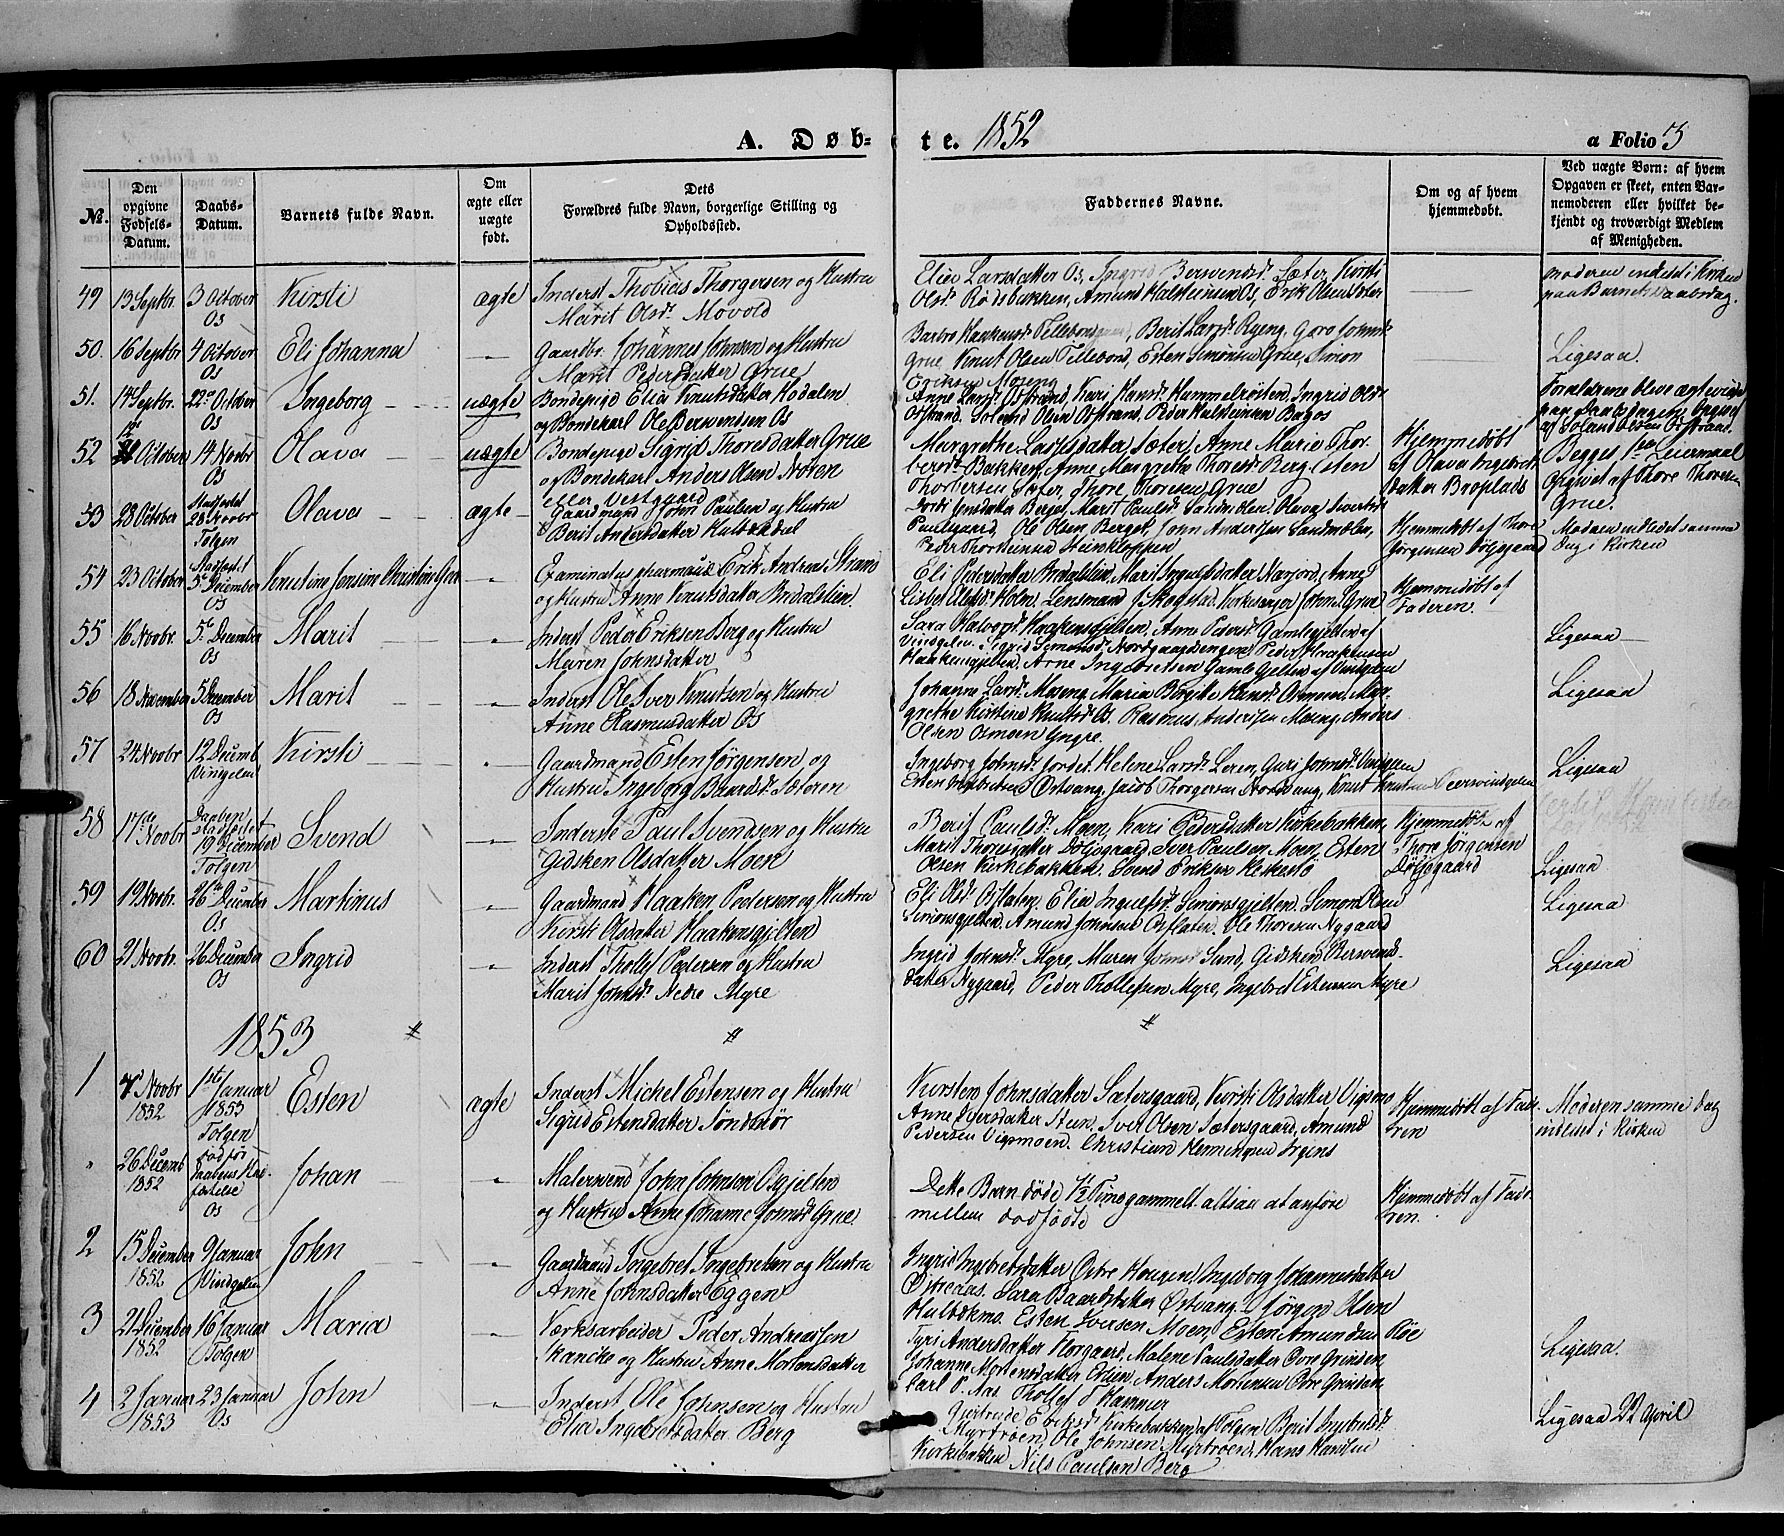 A. Døb-te. 1852
a Folio 5
№.
Den opgivne Fødsels-Datum.
Daabs-Datum.
Barnets fulde Navn.
Om ægte eller uægte født.
Dets Forældres fulde Navn, borgerlige Stilling og Opholdssted.
Faddernes Navne.
Om og af hvem hjemmedøbt.
Ved uægte Børn: af hvem Opgaven er skeet, enten Bar-nemoderen eller hvilket be-kjendt og troværdigt Medlem af Menigheden.
49 13 Septbr. 3 October Os Kirsti ægte
Inderst Thobias Thorgersen og Hustru
Marit Olsd. Movold
Elier Larsdatter Os, Ingrid Berswendsd. Sæter, Kirsti
Olsd. Rødsbakken, Amund Halsteinsen Os, Erik Olsen Sæter
Moderen indledet i Kirken
paa Barnets Daabsdag.
50. 16 Septbr 4 October Os Eli Johanna
Gaardbr. Johannes Johnsen og Hustru
Marit Pedersdatter Grue
Barbro Haakensd. Tillebon, Berit Larsd. Ryeng, Goro Johnsd.
Grue Knut Olsen Tillebond, Esten Simonsen Grue, Simon
Eriksen Moseng
Ligesaa.
51. 14 Septbr. 22 October Os Ingeborg uægte
Bondepige Elia Knutsdatter Hodalen
og Bondekarl Ole Berswendsen Os
Anne Larsd. Østrand, Kari Hansd. Hummelrosten, Ingrid Olsd.
Østrand. Solend Olsen Østrand. Peder Halsteinsen Bagos
Forældrene bleve ægteviede
paa Daabsdagen. Opgivet
af Soland Olsen Østrand.
52 October 14 Novbr Os Olava uægte
Bondepige Sigrid Thoresdatter Grue
og Bondekarl Anders Olsen Noren
eller Vestgaard
Margrethe Larsdatter Sæter, Anne Marie Thor-
bersd. Bakken, Anne Margrethe Thoresd. Berg, Esten
Thorbersen Sæter, Thore Thoresen Grue
Hjemmedøbt
af Olava Ingebrets
datter Broplads
Begges 1ste Leiermaal
Opgivet af Thore Thoresen
Grue.
53 28 October Stadfæstet 28 Novbr Tolgen Olava ægte
Gaardmand John Paulsen og Hustru
Berit Andersdatter Hulbækdal
Paulsgaard, Ole Olsen Berget, John Andersen Sandmælen,
Peder Thorsteinsen Steinkloppen
Hjemmedøbt af Thore
Jørgensen Dølgsgaard
Moderen indledet samme
Dag i Kirken
54 23 October Stadfæstet 5 December Os Knutine Jensine Christine Grue
Examinatus pharmaus Erik Andreas Strøm
og Hustru Anne Knutsdatter Bredalslien.
Eli Pedersdatter Bredalslien, Marit Ingulfsdatter Narjord, Anne
Lisbet Olesd. Holm. Lensmand J. Skogstad. Kirkesanger Johnsd. Grue
Hjemmedøbt af
Faderen.
55 16 Novbr. 5 December Os Marit
Inderst Peder Eriksen Berg og Hustru
Maren Johnsdatter
Sara Halvorsd. Haakensgjelten. Anne Pedersd. Gamlegjelten af
Vingelen. Sigrid Simonsd. Nordgaardsengen. Peder Haakensen
Haakensgjelten. Arne Ingebretsen Gamle Gjelten af Vingelen
Ligesaa
56 18 November 5 December Os Marit
Inderst Ole Iver Knutsen og Hustru
Anne Rasmusdatter Os
Johanne Larsd. Moseng. Maria Birgitte Hansd. Osmoen. Mar-
grethe Kirstine Knutsd. Os. Rasmus Andersen Moseng. Anders
Olsen Osmoen Yngre.
Ligesaa
57 24 Novbr 12 Decemb Vingelen Kirsti
Gaardmand Esten Jørgensen og
Hustru Ingeborg Baardsd. Sæteren
Ingeborg Johnsd. Jordet. Helene Larsd. Leren, Guri Johnsd. Vingelen
Østvang, Jacob Thorgersen Nordvang, Knut Knutsen Nervindgelen
Ligesaa
58 17de Novbr Daaben stadfæstet 19 December Tolgen Svend
Inderste Paul Svendsen og Hustru
Gidsken Olsdatter Moen
Berit Paulsd. Moen, Kari Pedersdatter Kirkebakken,
Marit Thoresdatter Dølgsgaard, Iver Paulsen Moen, Esten
Olsen Kirkebakken. Svend Eriksen Kerkesø
Hjemmedøbt af
Thore Jørgensen
Dølgsgaard
Ligesaa
59 19 Novbr. 26 December Os Martinus
Gaardmand Haaken Pedersen og Hustru
Kirsti Olsdatter Haakensgjelten
Eli Olsd. Osflaten. Elia Ingulfsd. Simonsgjelten. Simon Olsen
Simonsgjelten. Amund Johnsen Osflaten. Ole Thoresen Nygaard
Ligesaa
60 21 Novbr. 26 December Os Ingrid
Inderst Thollef Pedersen og Hustru
Marit Johnsd. Nedre Myre
Ingrid Johnsd. Myre, Maren Johnsd. Sund, Gidsken Berswends-
datter Nygaard, Peder Thollefsen Myre, Ingebret Estensen Myre
Ligesaa
1853
1 7 Novbr 1852 1ste Januar 1853 Tolgen Esten ægte
Inderst Michel Estensen og Hustru
Sigrid Estensdatter Søndmør
Kirsten Johnsdatter Sætersgaard, Kirsti Olsdatter Vigsmo
Anne Iversdatter Steen. Iver Olsen Sætersgaard, Amund
Pedersen Vigsmoen. Christian Henningsen Irgens
Hjemmedøbt af Fade-
ren
Moderen samme Dag
indledet i Kirken
" 26 Decemb 1852 død før Daabens Stad-fæstelse Os Johan
Malersvend John Johnsen Osgjelten
og Hustru Anne Johanne Johnsd. Grue
Dette Barn døde 1/2 Time gammelt altsaa at anføre
mellem dødfødte
Hjemmedøbt af Fade-
ren.
2 15 December 1852 9 Januar Vindgelen John
Gaardmand Ingebret Ingebretsen og Hustru
Anne Johnsdatter Eggen
Ingrid Ingebretsdatter Østre Haugen, Ingeborg Johannesdatter
Østreaas. Sara Baardsdatter Østvang. Jørgen Olsen
Hulbækmo. Esten Iversen Moen, Esten Amundsen Røe
3 21 December 1852 16 Januar Tolgen Maria
Værksarbeider Peder Andreassen
Skancke og Hustru Anne Mortensdatter
Tyri Andersdatter Horgaard, Malene Paulsdatter Øvre Grinden
Johanne Mortensdatter Erlien, Anders Mortensen Øvre Grinden
Carl P. Aas Thollef T Hammer
Ligesaa.
4 2 Januar 1853 23 Januar Os John
Inderst Ole Johnsen og Hustru
Elia Ingebretsdatter Berg
Gjertrude Eriksd. Kirkebakken af Tolgen Berit Ingebretsd.
Myrtrøen, Ole Johnsen Myrtrøen, Hans Hansen
Kirkebakken Nils Paulsen Berg
Ligesaa 22 April